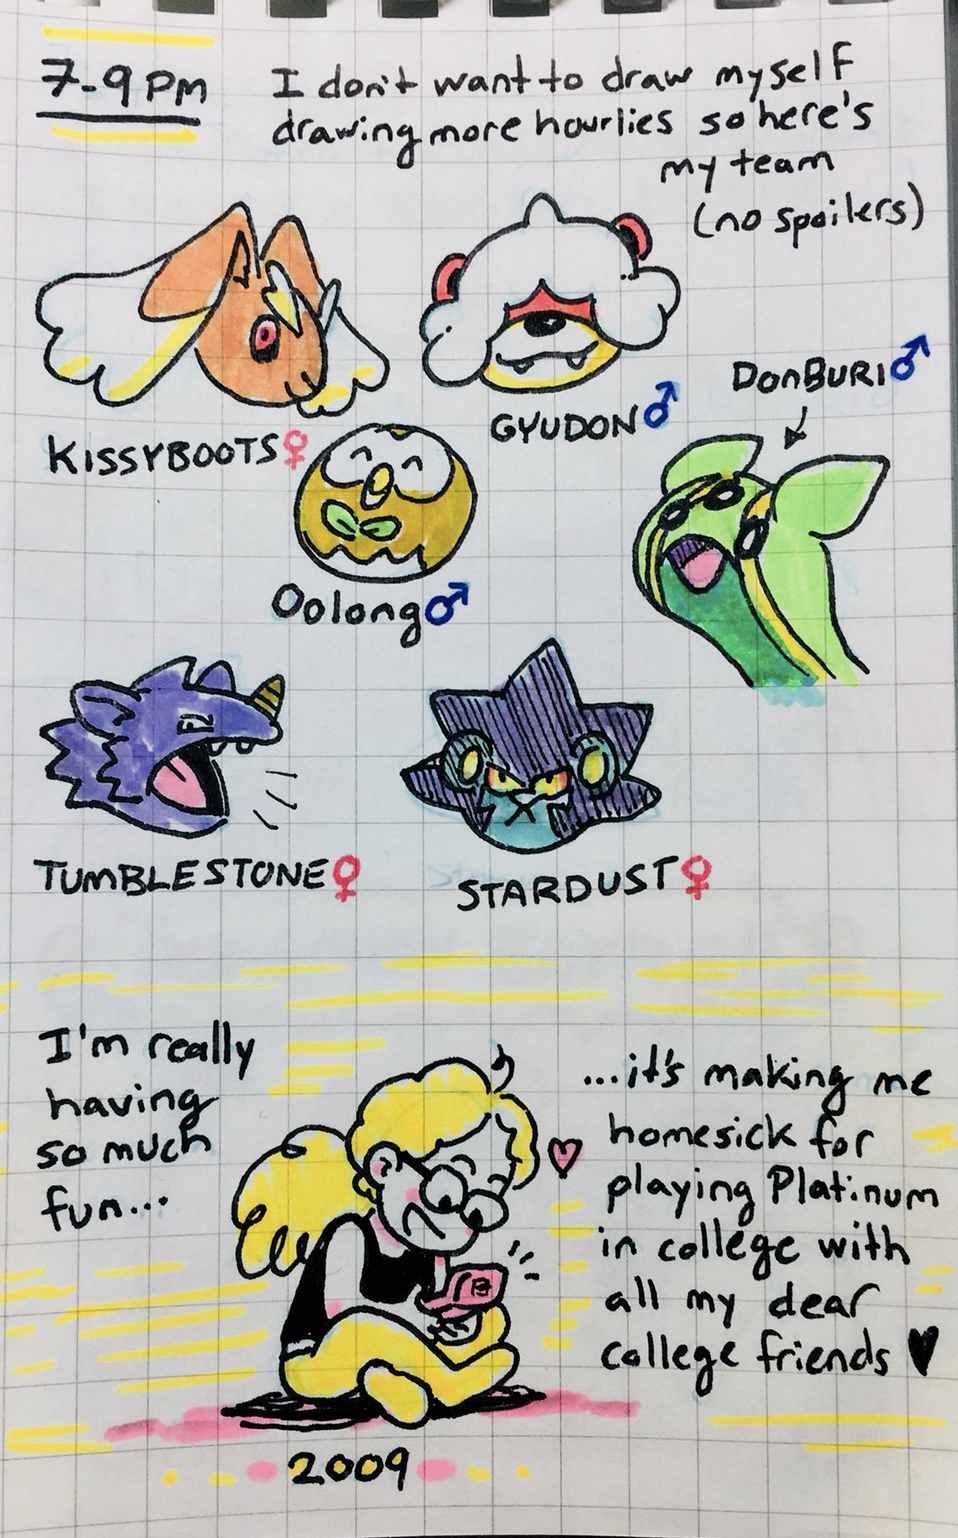 7-9PM
I don't want to draw myself
drawing more hourlies so here's
my team
(no spoilers)
KISSYBOOTS♀
GYUDON♂
DONBURI♂
Oolong♂
TUMBLESTONE♀
STARDUST♀
I'm really
having
so much
fun...
...it's making me
homesick for
playing Platinum
in college with
all my dear
college friends ♥
2009